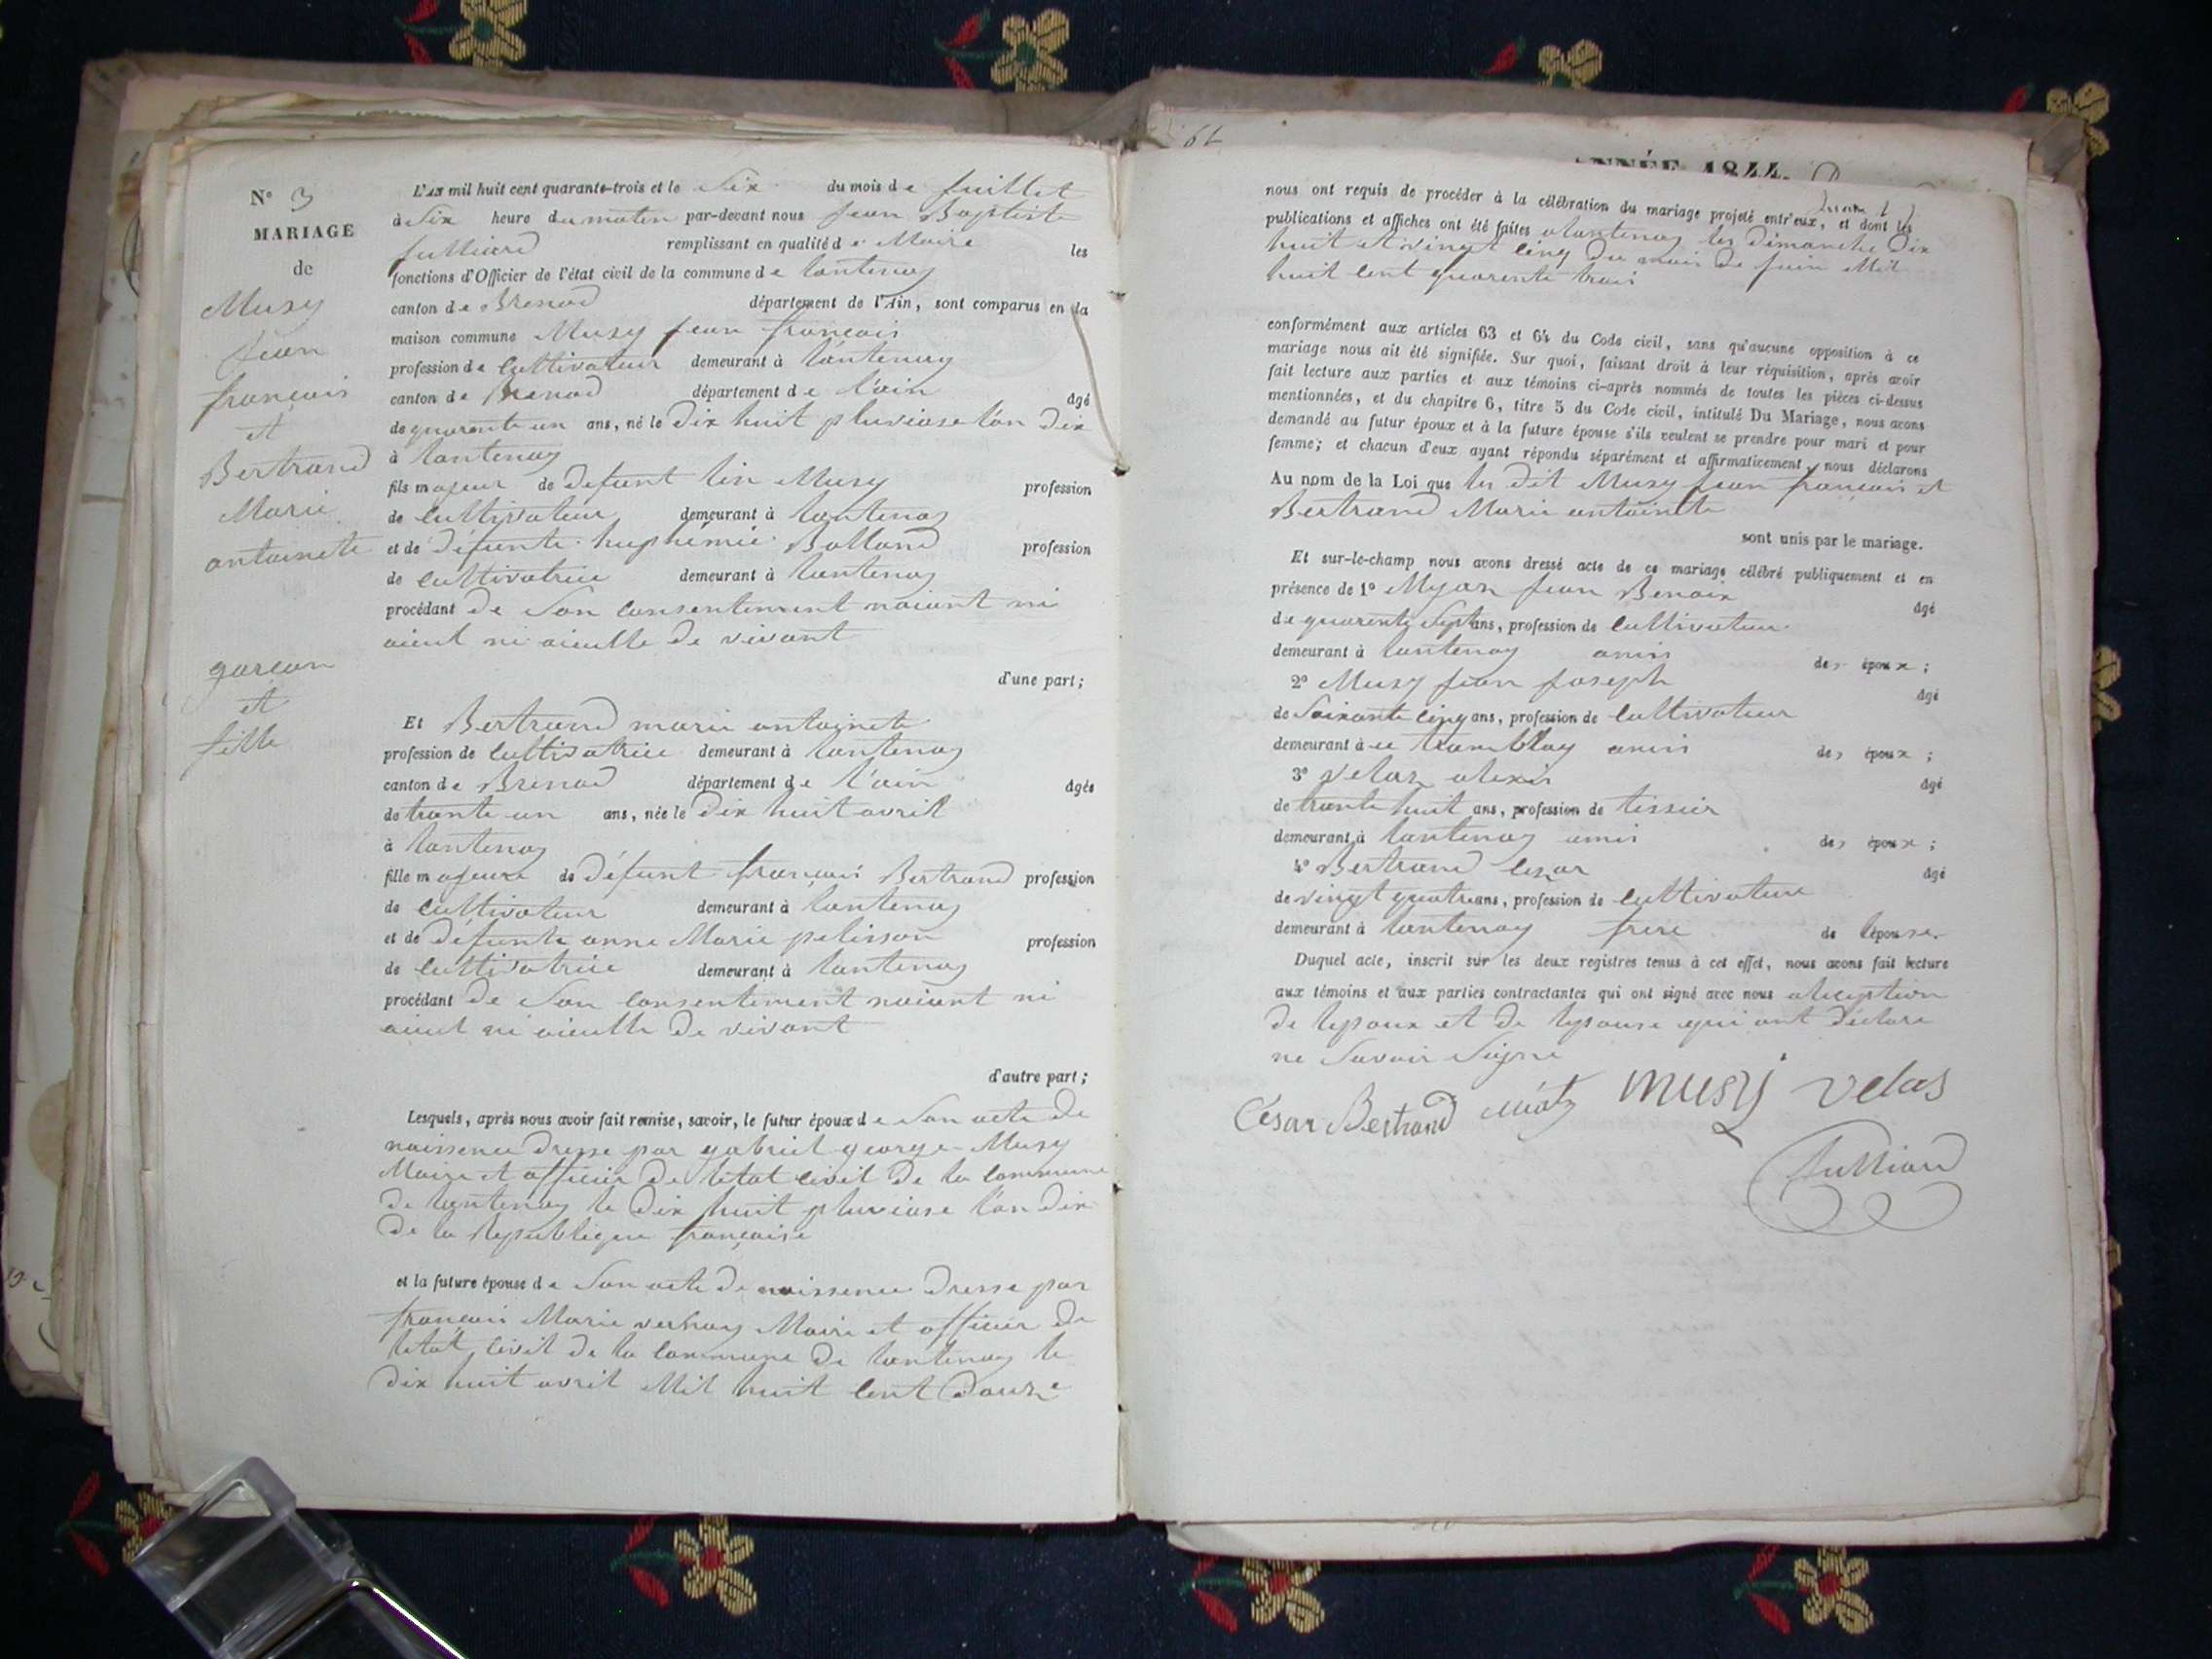 N° 3
MARIAGE
de
Musy
jean
francois
et
Bertrand
Marie
antoinete
garcon
et
fille
L'AN mil huit cent quarante-trois et le Six du mois de juillet
à Six heure du matin par-devant nous jean Baptiste
julliard remplissant en qualité de Maire les
fonctions d'Officier de l'état civil de la commune de lantenay
canton de Brenod département de l'Ain, sont comparus en la
maison commune Musy jean francois
profession de Cultivateur demeurant à lantenay
canton de Brenod département de l'ain âgé
de quarante un ans, né le Dix huit pluviose l'an Dix
à lantenay
fils majeur de Defunt lin Musy profession
de Cultivateur demeurant à lantenay
et de défunte huphémie Balland profession
de Cultivatrice demeurant à lantenay
procédant de Son Consentement naiant ni
aieul ni aieulle de vivant
d'une part;
Et Bertrand marie antoinete
profession de Cultivatrice demeurant à lantenay
canton de Brenod département de l'ain âgée
de trante un ans, née le Dix huit avril
à lantenay
fille majeure de défunt francois Bertrand profession
de Cultivateur demeurant à lantenay
et de défunte anne Marie pelisson profession
de Cultivatrice demeurant à lantenay
procédant de Son Consentement naiant ni
aieul ni aieulle de vivant
d'autre part;
Lesquels, après nous avoir fait remise, savoir, le futur époux de Son acte de
naissence dresse par gabriel george Musy
Maire et officier de letat civil de la Commune
de lantenay le Dix huit pluviose l'an dix
de la Republique française
et la future épouse de Son acte de naissence dresse par
francois Marie vernay Maire et officier de
létat civil de la Commune de lantenay le
dix huit avril Mil huit Cent douze
61
ANNÉE 1844.
nous ont requis de procéder à la célébration du mariage projeté entr'eux, et dont les
publications et affiches ont été faites alantenay les dimanche Dix
huit et vingt Cinq du mois de juin Mil
huit Cent quarente trois
conformément aux articles 63 et 64 du Code civil, sans qu'aucune opposition à ce
mariage nous ait été signifiée. Sur quoi, faisant droit à leur réquisition, après avoir
fait lecture aux parties et aux témoins ci-après nommés de toutes les pièces ci-dessus
mentionnées, et du chapitre 6, titre 5 du Code civil, intitulé Du Mariage, nous avons
demandé au futur époux et à la future épouse s'ils veulent se prendre pour mari et pour
femme; et chacun d'eux ayant répondu séparément et affirmativement, nous déclarons
Au nom de la Loi que les dit Musy jean francois et
Bertrand Marie antoinette
sont unis par le mariage.
Et sur-le-champ nous avons dressé acte de ce mariage célébré publiquement et en
présence de 1° jean Benoix âgé
de quarente Sept ans, profession de Cultivateur
demeurant à lantenay amis des époux;
2° Musy jean joseph âgé
de Soixante Cinq ans, profession de Cultivateur
demeurant à ce tramblay amis des époux;
3° velas alexis âgé
de trante huit ans, profession de tissier
demeurant à lantenay amis des époux;
4° Bertrand Cesar âgé
de vingt quatre ans, profession de Cultivateur
demeurant à lantenay frere de lépouse.
Duquel acte, inscrit sur les deux registres tenus à cet effet, nous avons fait lecture
aux témoins et aux parties contractantes qui ont signé avec nous alexeption
de lepoux et de lepouse qui ont déclare
ne Savoir Signe
César Bertrand musy velas
Julliard